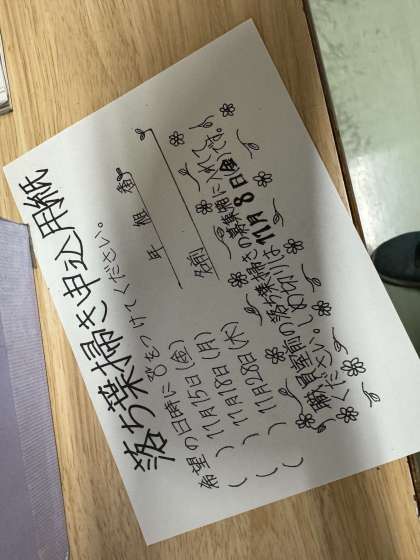 落ち葉掃き申込用紙
希望の日時に○をつけてください。
(　) 11月15日(金)
(　) 11月18日(月)
(　) 11月28日(木)
年　組　番
名前
職員室前の落ち葉掃きの募集箱に入れて
ください。しめ切りは 11月8日(金)です。